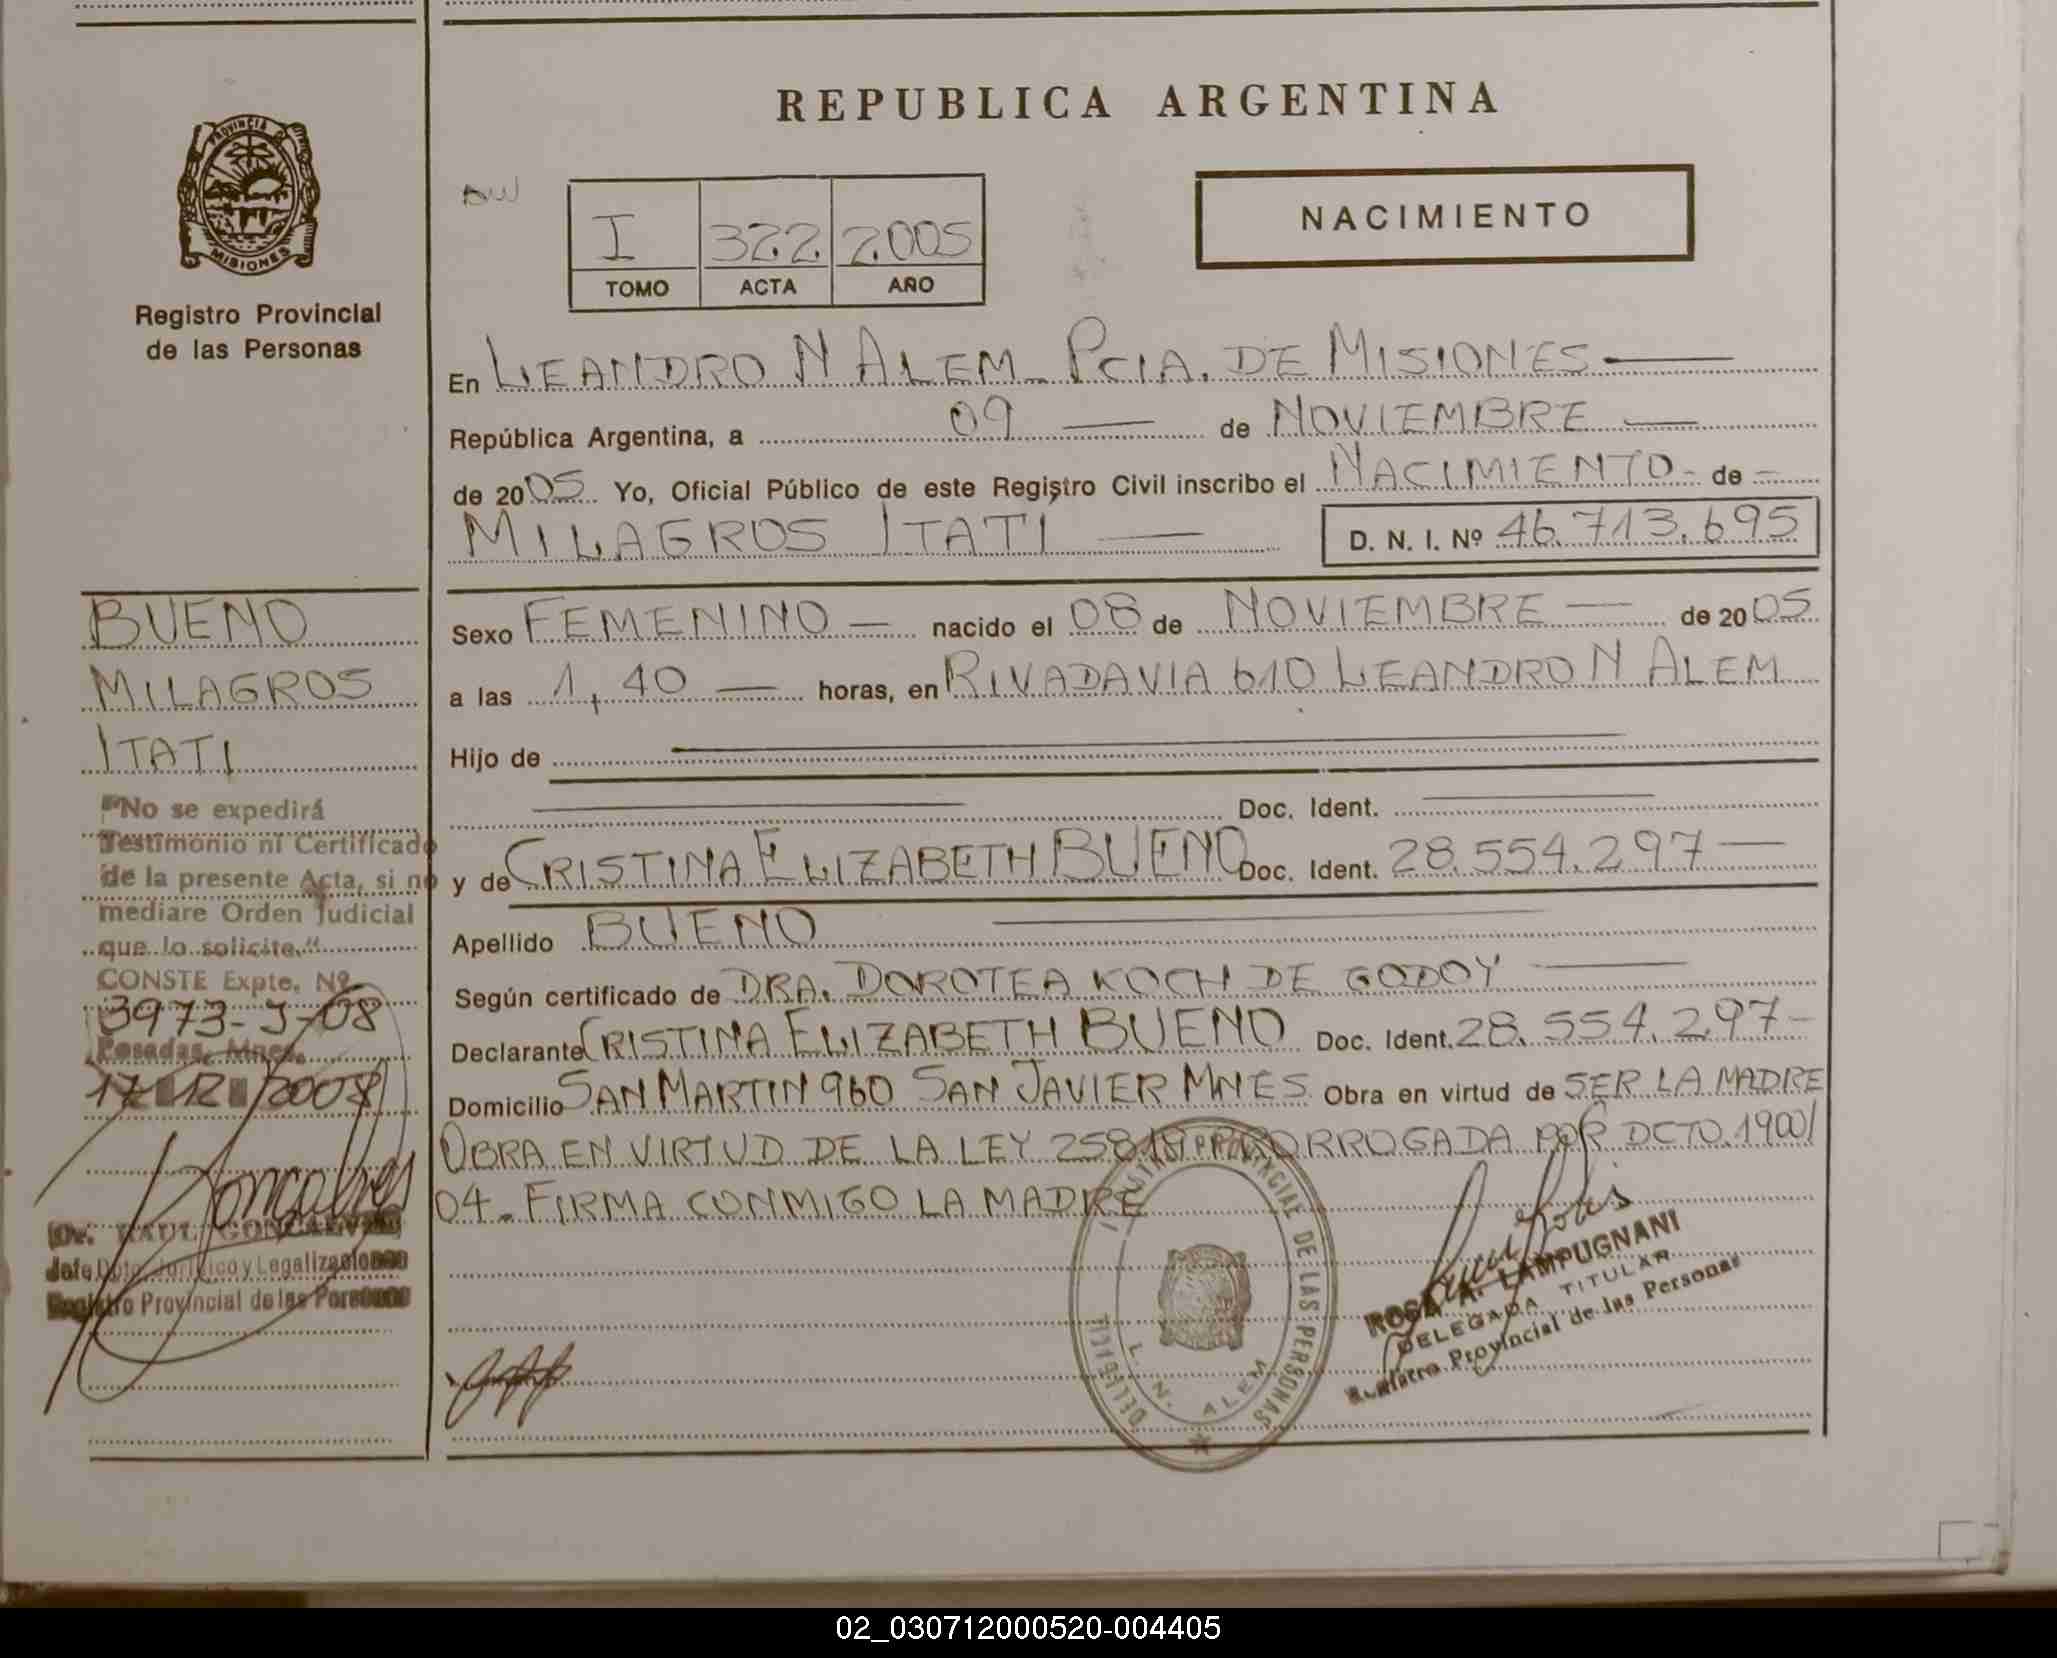 REPUBLICA ARGENTINA
PROVINCIA DE
MISIONES
Registro Provincial
de las Personas
I 322 2005
TOMO ACTA AÑO
NACIMIENTO
En LEANDRO N ALEM PCIA. DE MISIONES
República Argentina, a 09 de NOVIEMBRE
de 2005 Yo, Oficial Público de este Registro Civil inscribo el NACIMIENTO de
MILAGROS ITATI D. N. I. Nº 46.713.695
Sexo FEMENINO nacido el 08 de NOVIEMBRE de 2005
a las 1,40 horas, en RIVADAVIA 610 LEANDRO N ALEM
Hijo de
Doc. Ident.
y de CRISTINA ELIZABETH BUENO Doc. Ident. 28.554.297
Apellido BUENO
Según certificado de DRA. DOROTEA KOCH DE GODOY
Declarante CRISTINA ELIZABETH BUENO Doc. Ident. 28.554.297-
Domicilio SAN MARTIN 960 SAN JAVIER MNES Obra en virtud de SER LA MADRE
OBRA EN VIRTUD DE LA LEY 25818 PRORROGADA POR DCTO. 1900/
04. FIRMA CONMIGO LA MADRE
BUENO
MILAGROS
ITATI
"No se expedirá
Testimonio ni Certificado
de la presente Acta, si no
mediare Orden Judicial
que lo solicite."
CONSTE Expte. Nº
3973-J-08
Posadas, Mnes.
17 12 2008
Goncalves
Dr. RAUL GONCALVES
Jefe Dpto. Jurídico y Legalizaciones
Registro Provincial de las Personas
REGISTRO PROVINCIAL DE LAS PERSONAS
L. N. ALEM
ROSA A. LAMPUGNANI
DELEGADA TITULAR
Registro Provincial de las Personas
02_030712000520-004405